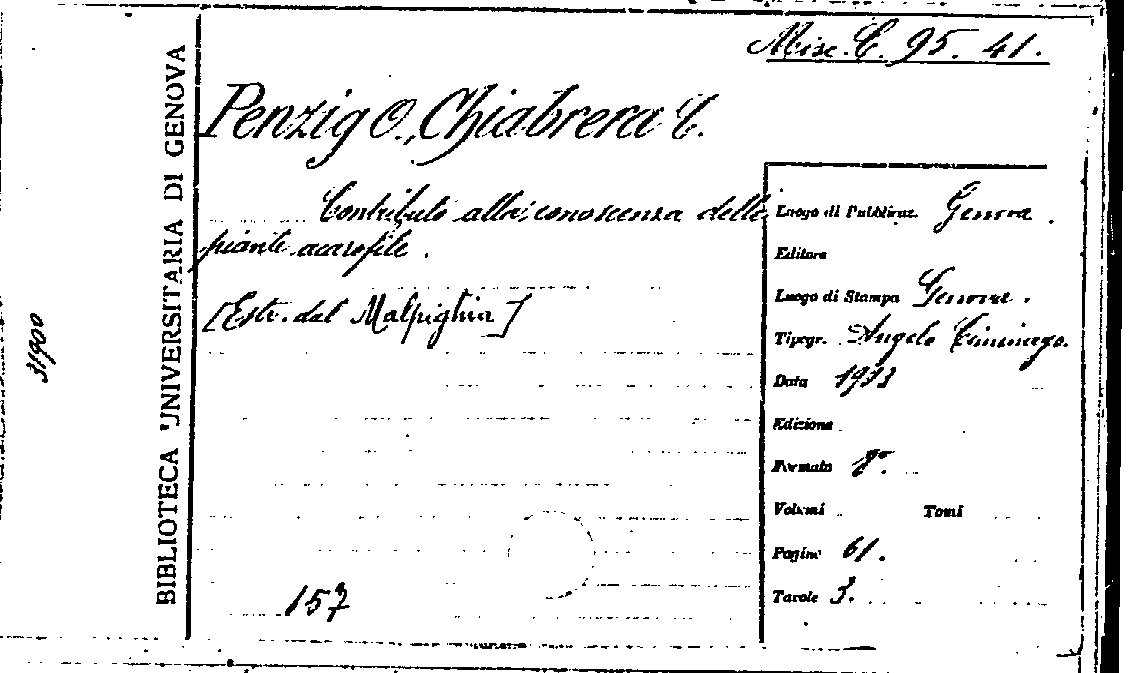 Misc. C. 95. 41.
Penzig O., Chiabrera C.
Contributo alla conoscenza delle
piante acarofile.
[Estr. dal Malpighia]
157
Luogo di Pubblicaz. Genova.
Editore
Luogo di Stampa Genova.
Tipogr. Angelo Ciminago.
Data
Edizione
Formato 8°.
Volumi Tomi
Pagine 61.
Tavole 3.
BIBLIOTECA UNIVERSITARIA DI GENOVA
31900